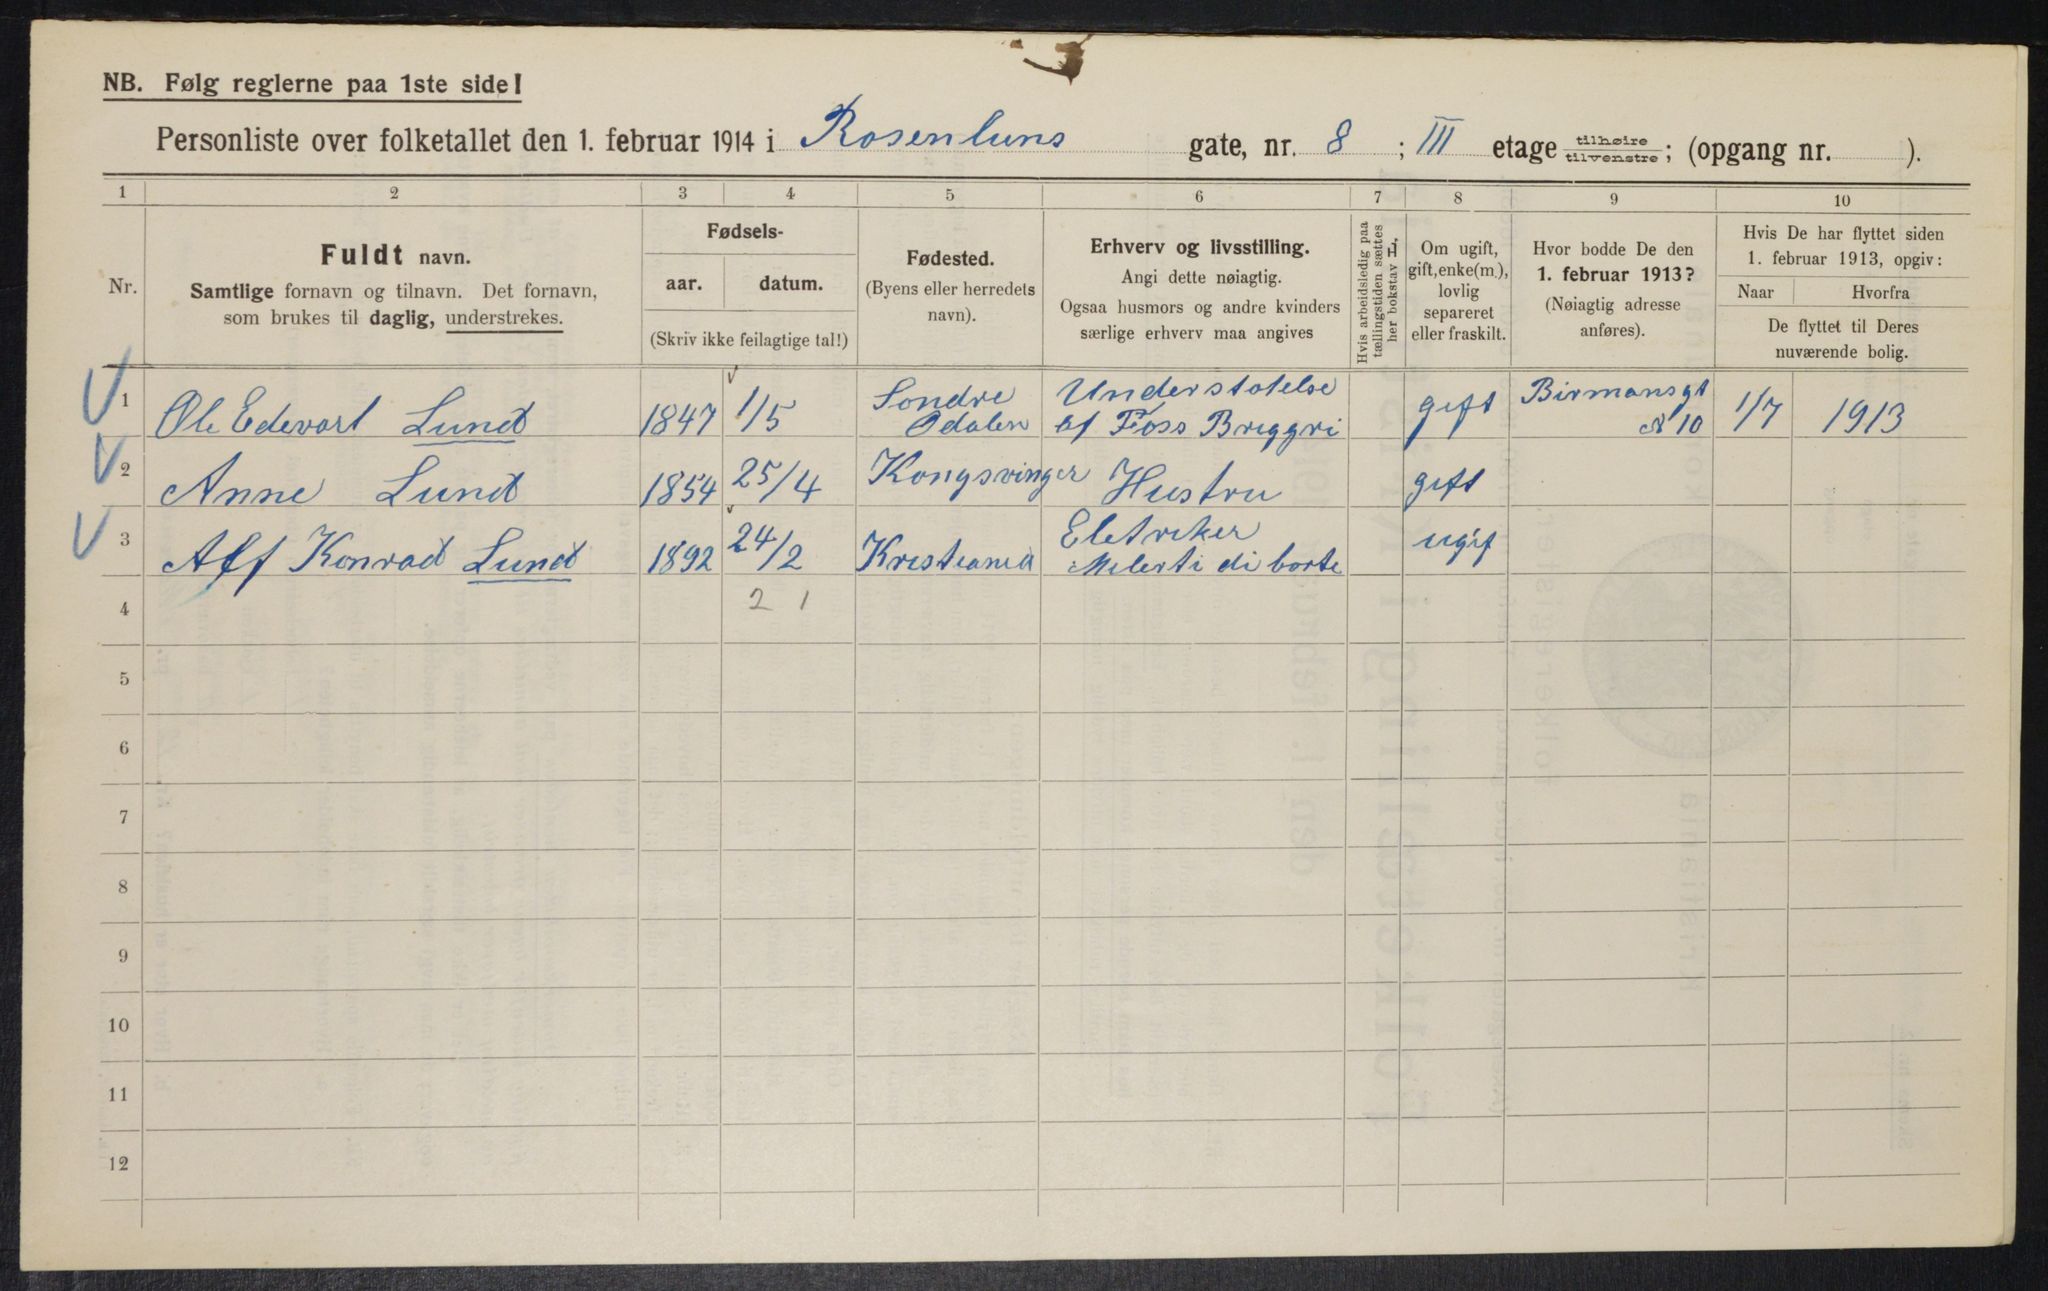 NB. Følg reglerne paa 1ste side!
Personliste over folketallet den 1. februar 1914 i Rosenluns gate, nr. 8 ; III etage tilhøire tilvenstre; (opgang nr. ).
1 2 3 4 5 6 7 8 9 10
Nr.
Fuldt navn.
Samtlige fornavn og tilnavn. Det fornavn,
som brukes til daglig, understrekes.
Fødsels-
aar. datum.
(Skriv ikke feilagtige tal!)
Fødested.
(Byens eller herredets
navn).
Erhverv og livsstilling.
Angi dette nøiagtig.
Ogsaa husmors og andre kvinders
særlige erhverv maa angives
Hvis arbeidsledig paa
tællingstiden sættes
her bokstav L.
Om ugift,
gift, enke(m.),
lovlig
separeret
eller fraskilt.
Hvor bodde De den
1. februar 1913?
(Nøiagtig adresse
anføres).
Hvis De har flyttet siden
1. februar 1913, opgiv:
Naar Hvorfra
De flyttet til Deres
nuværende bolig.
1 Ole Edevart Lund 1847 1/5 Sondre Odalen Understotelse af Foss Bryggri gift Birmansgt N 10 1/7 1913
2 Anne Lund 1854 25/4 Kongsvinger Hustru gift
3 Alf Konrad Lund 1892 24/2 Kristiania Eletriker ugif
4 2 1
5
6
7
8
9
10
11
12